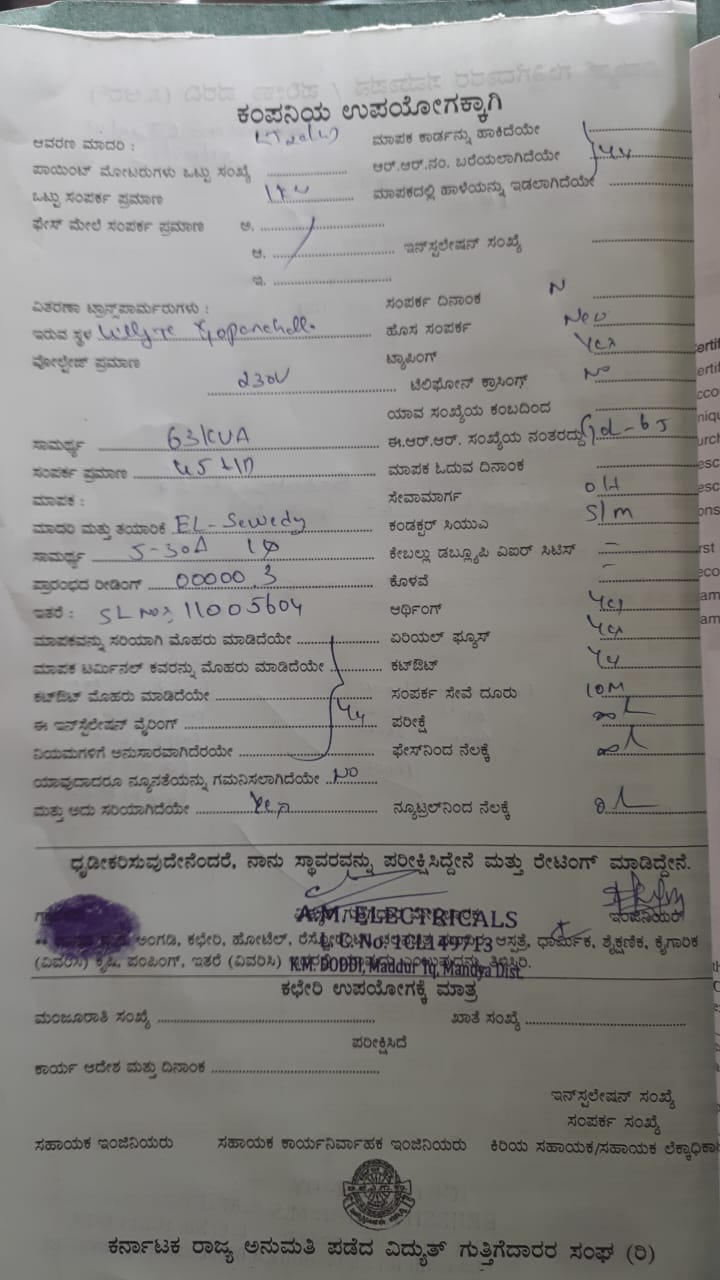 ಕಂಪನಿಯ ಉಪಯೋಗಕ್ಕಾಗಿ
ಆವರಣ ಮಾದರಿ : ಮಾಪಕ ಕಾರ್ಡನ್ನು ಹಾಕಿದೆಯೇ
ಪಾಯಿಂಟ್ ಮೋಟರುಗಳು ಒಟ್ಟು ಸಂಖ್ಯೆ ಆರ್.ಆರ್.ನಂ. ಬರೆಯಲಾಗಿದೆಯೇ
ಒಟ್ಟು ಸಂಪರ್ಕ ಪ್ರಮಾಣ ಮಾಪಕದಲ್ಲಿ ಹಾಳೆಯನ್ನು ಇಡಲಾಗಿದೆಯೇ
ಫೇಸ್ ಮೇಲೆ ಸಂಪರ್ಕ ಪ್ರಮಾಣ ಅ.
ಆ. ಇನ್‌ಸ್ಟಲೇಷನ್ ಸಂಖ್ಯೆ
ಇ.
ವಿತರಣಾ ಟ್ರಾನ್ಸ್‌ಪಾರ್ಮರುಗಳು : ಸಂಪರ್ಕ ದಿನಾಂಕ N
ಇರುವ ಸ್ಥಳ ಹೊಸ ಸಂಪರ್ಕ New
ವೋಲ್ಟೇಜ್ ಪ್ರಮಾಣ 230V ಟ್ಯಾಪಿಂಗ್ Yes
ಟೆಲಿಫೋನ್ ಕ್ರಾಸಿಂಗ್ No
ಯಾವ ಸಂಖ್ಯೆಯ ಕಂಬದಿಂದ
ಸಾಮರ್ಥ್ಯ 63KVA ಈ.ಆರ್.ಆರ್. ಸಂಖ್ಯೆಯ ನಂತರದ್ದು
ಸಂಪರ್ಕ ಪ್ರಮಾಣ ಮಾಪಕ ಓದುವ ದಿನಾಂಕ
ಮಾಪಕ : ಸೇವಾಮಾರ್ಗ OH
ಮಾದರಿ ಮತ್ತು ತಯಾರಿಕೆ EL-Sewedy ಕಂಡಕ್ಟರ್ ಸಿಯುವಿ S/m
ಸಾಮರ್ಥ್ಯ 5-30A 1Ø ಕೇಬಲ್ಲು ಡಬ್ಲ್ಯೂಪಿ ವಿಐರ್ ಸಿಟಿಸ್ –
ಪ್ರಾರಂಭದ ರೀಡಿಂಗ್ 00000.3 ಕೊಳವೆ –
ಇತರೆ : SL No: 11005604 ಆರ್ಥಿಂಗ್ Yes
ಮಾಪಕವನ್ನು ಸರಿಯಾಗಿ ಮೊಹರು ಮಾಡಿದೆಯೇ ಏರಿಯಲ್ ಫ್ಯೂಸ್ Yes
ಮಾಪಕ ಟರ್ಮಿನಲ್ ಕವರನ್ನು ಮೊಹರು ಮಾಡಿದೆಯೇ ಕಟ್‌ಔಟ್ Yes
ಕಟ್‌ಔಟ್ ಮೊಹರು ಮಾಡಿದೆಯೇ ಸಂಪರ್ಕ ಸೇವೆ ದೂರು 10M
ಈ ಇನ್‌ಸ್ಟಲೇಷನ್ ವೈರಿಂಗ್ Yes ಪರೀಕ್ಷೆ
ನಿಯಮಗಳಿಗೆ ಅನುಸಾರವಾಗಿದೆರಯೇ ಫೇಸ್‌ನಿಂದ ನೆಲಕ್ಕೆ
ಯಾವುದಾದರೂ ನ್ಯೂನತೆಯನ್ನು ಗಮನಿಸಲಾಗಿದೆಯೇ NO
ಮತ್ತು ಅದು ಸರಿಯಾಗಿದೆಯೇ Yes ನ್ಯೂಟ್ರಲ್‌ನಿಂದ ನೆಲಕ್ಕೆ
ಧೃಡೀಕರಿಸುವುದೇನೆಂದರೆ, ನಾನು ಸ್ಥಾವರವನ್ನು ಪರೀಕ್ಷಿಸಿದ್ದೇನೆ ಮತ್ತು ರೇಟಿಂಗ್ ಮಾಡಿದ್ದೇನೆ.
A.M. ELECTRICALS
ಇಂಜಿನಿಯರ್
ಅಂಗಡಿ, ಕಛೇರಿ, ಹೋಟೆಲ್, ಆಸ್ಪತ್ರೆ, ಧಾರ್ಮಿಕ, ಶೈಕ್ಷಣಿಕ, ಕೈಗಾರಿಕ
L. C. No. 1CL14497F3
(ವಿವರಿಸಿ) ಕೃಷಿ, ಪಂಪಿಂಗ್, ಇತರೆ (ವಿವರಿಸಿ) ತಿಳಿಸಿರಿ.
K.M. DODDI, Maddur Tq, Mandya Dist.
ಕಛೇರಿ ಉಪಯೋಗಕ್ಕೆ ಮಾತ್ರ
ಮಂಜೂರಾತಿ ಸಂಖ್ಯೆ ಖಾತೆ ಸಂಖ್ಯೆ
ಪರೀಕ್ಷಿಸಿದೆ
ಕಾರ್ಯ ಆದೇಶ ಮತ್ತು ದಿನಾಂಕ
ಇನ್‌ಸ್ಟಲೇಷನ್ ಸಂಖ್ಯೆ
ಸಂಪರ್ಕ ಸಂಖ್ಯೆ
ಸಹಾಯಕ ಇಂಜಿನಿಯರು ಸಹಾಯಕ ಕಾರ್ಯನಿರ್ವಾಹಕ ಇಂಜಿನಿಯರು ಕಿರಿಯ ಸಹಾಯಕ/ಸಹಾಯಕ ಲೆಕ್ಕಾಧಿಕಾ
ಕರ್ನಾಟಕ ರಾಜ್ಯ ಅನುಮತಿ ಪಡೆದ ವಿದ್ಯುತ್ ಗುತ್ತಿಗೆದಾರರ ಸಂಘ (ರಿ)